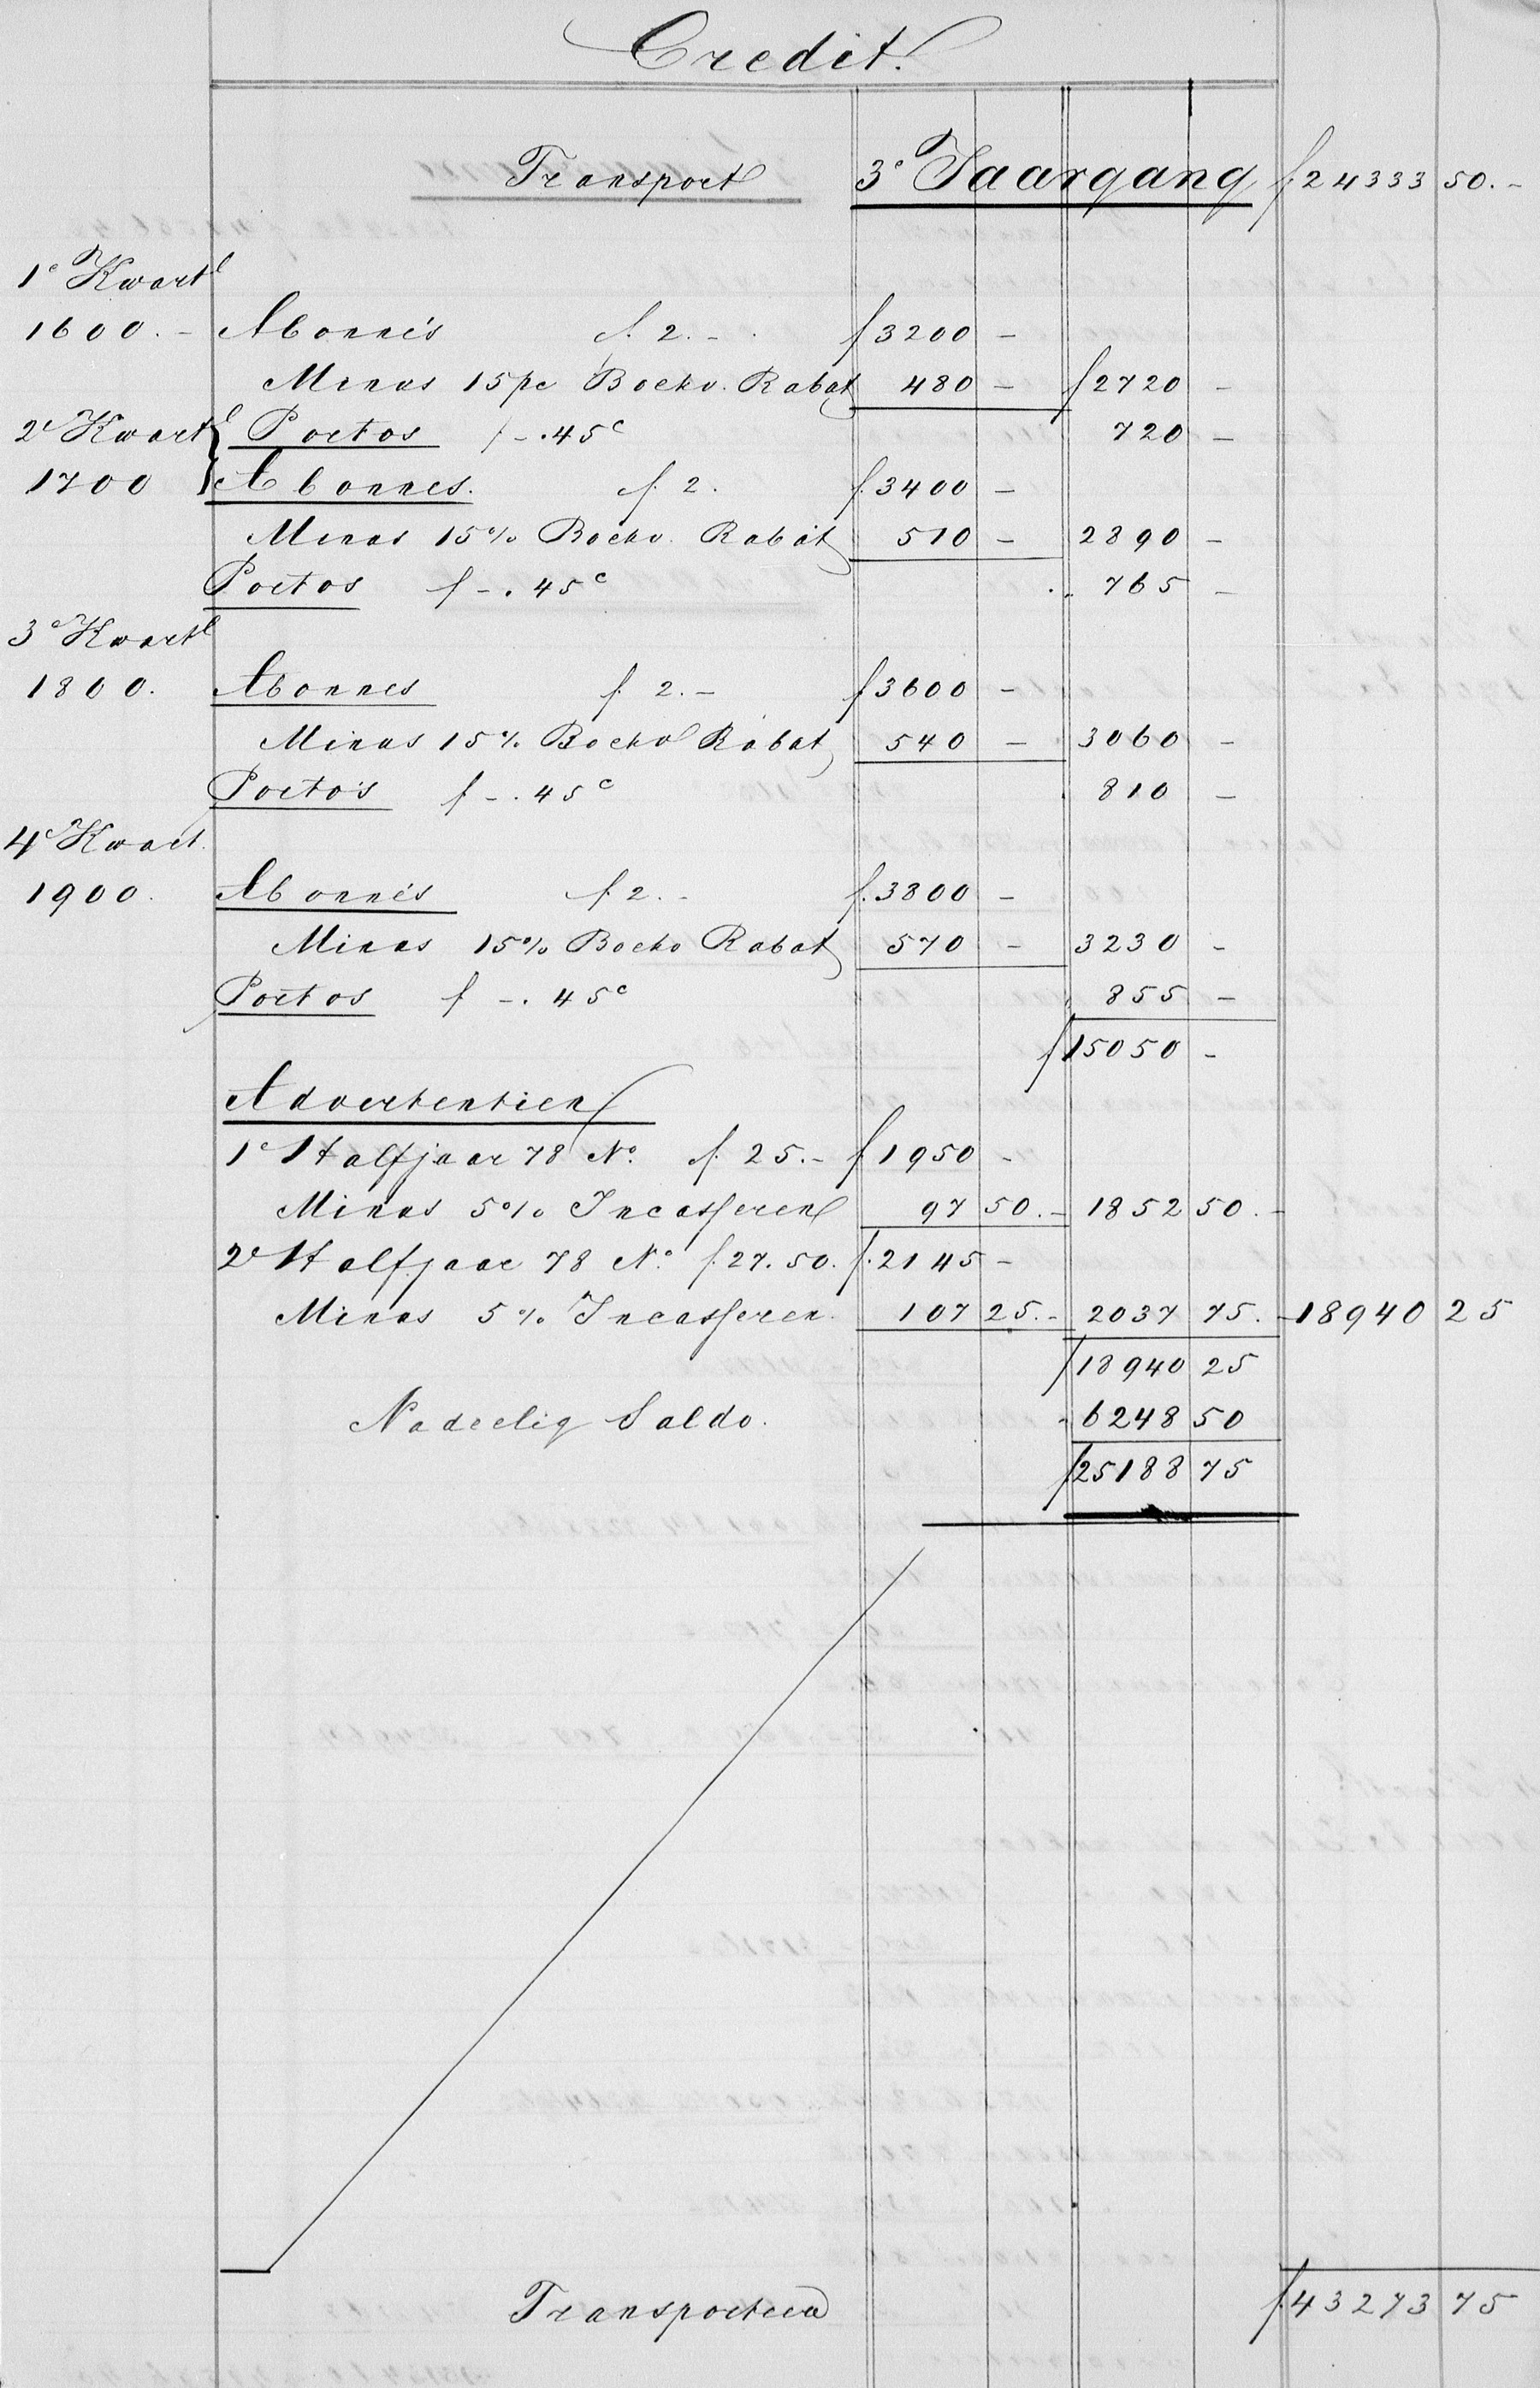 Credit.
Transport 3e Jaargang f 24333 50.-
1e Kwartl
1600.- Abonnés f. 2.- f 3200 -
Minus 15pc Boekv. Rabat 480 - f 2720 -
2e Kwartl Portos f -.45c 720 -
1700 Abonnes. f. 2. f. 3400 -
Minus 15% Boekv. Rabat 510 - 2890 -
Portos f -.45c 765 -
3e Kwartl
1800. Abonnes f. 2.- f 3600 -
Minus 15% Boekv Rabat 540 - 3060 -
Porto's f -.45c 810 -
4e Kwart.
1900. Abonnés f. 2.- f. 3800 -
Minus 15% Boekv Rabat 570 - 3230 -
Portos f -.45c 855 -
f 15050 -
Advertentien
1e Halfjaar 78 No. f. 25.- f 1950 -
Minus 5% Incasseren 97 50.- 1852 50.-
2e Halfjaar 78 No. f. 27.50. f. 2145 -
Minus 5% Incasseren. 107 25.- 2037 75.- 18940 25
f 18940 25
Nadeelig Saldo. - 6248 50
f 25188 75
Transporteere f. 43273 75